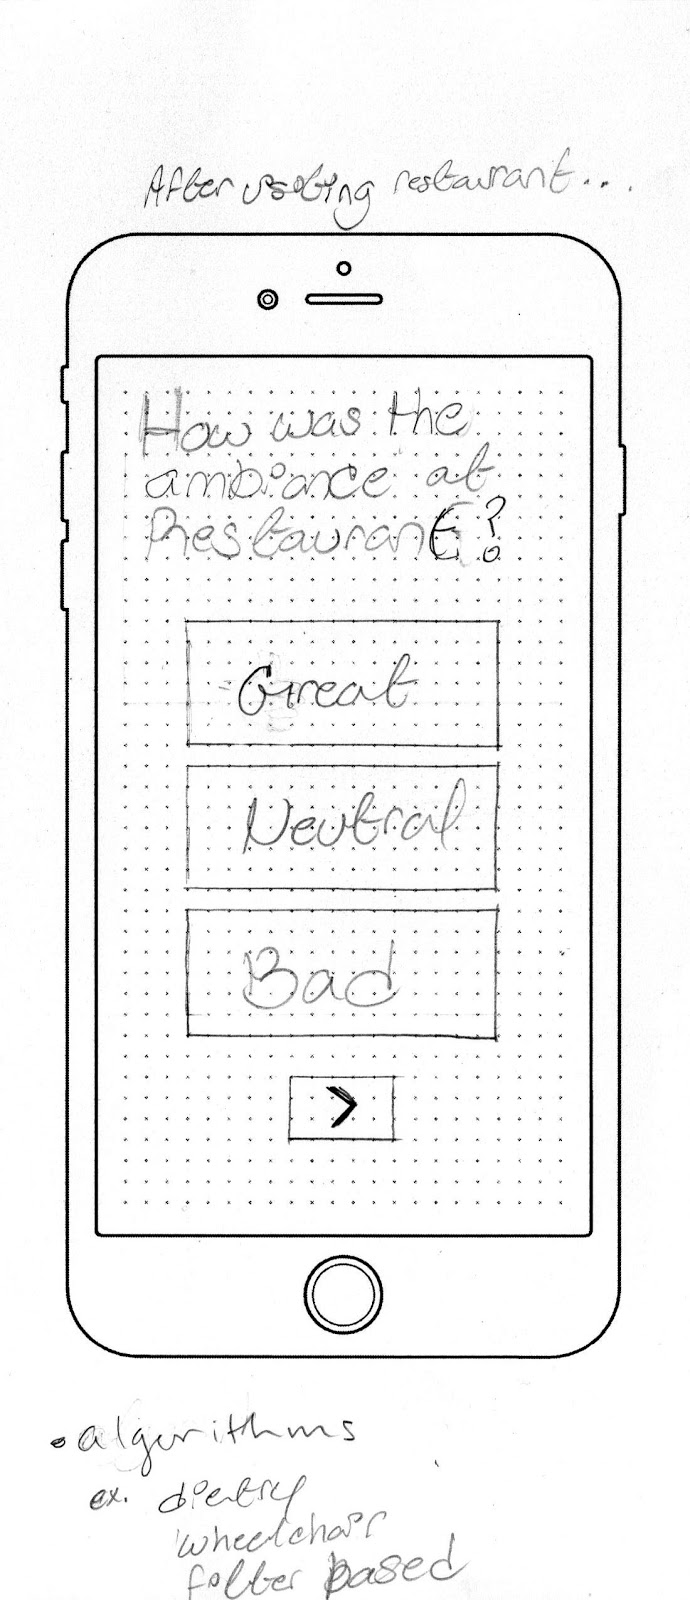 After visiting restaurant...
How was the
ambiance at
Restaurant?
Great
Neutral
Bad
>
• algorithms
ex. dietry
wheelchair
filter based